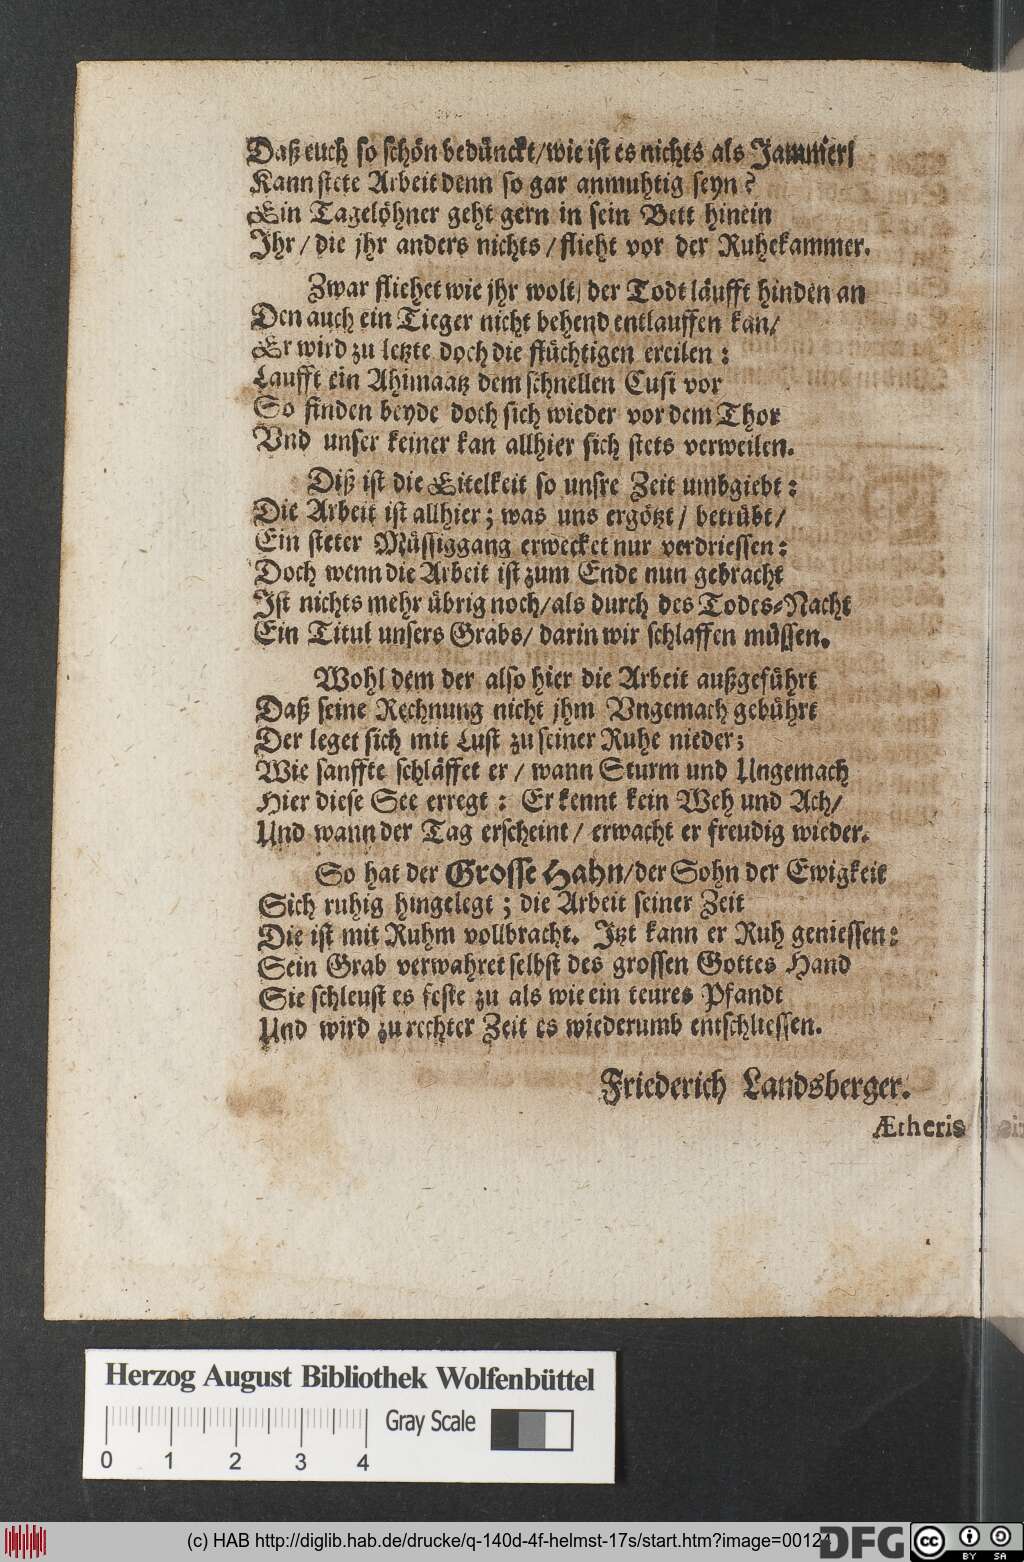 Daß euch so schön bedünckt/wie ist es nichts als Jammer/
Kann stete Arbeit denn so gar anmuhtig seyn?
Ein Tagelöhner geht gern in sein Bett hinein
Jhr/ die jhr anders nichts/ flieht vor der Ruhekammer.
Zwar fliehet wie jhr wolt/ der Todt läufft hinden an
Den auch ein Tieger nicht behend entlauffen kan/
Er wird zu letzte doch die flüchtigen ereilen:
Laufft ein Ahimaatz dem schnellen Cusi vor
So finden beyde doch sich wieder vor dem Thor
Vnd unser keiner kan allhier sich stets verweilen.
Diß ist die Eitelkeit so unsre Zeit umbgiebt:
Die Arbeit ist allhier; was uns ergötzt/ betrübt/
Ein steter Müssiggang erwecket nur verdriessen:
Doch wenn die Arbeit ist zum Ende nun gebracht
Jst nichts mehr übrig noch/als durch des Todes-Nacht
Ein Titul unsers Grabs/ darin wir schlaffen müssen.
Wohl dem der also hier die Arbeit außgeführt
Daß seine Rechnung nicht jhm Vngemach gebührt
Der leget sich mit Lust zu seiner Ruhe nieder;
Wie sanffte schläffet er/ wann Sturm und Ungemach
Hier diese See erregt: Er kennt kein Weh und Ach/
Und wann der Tag erscheint/ erwacht er freudig wieder.
So hat der Grosse Hahn/der Sohn der Ewigkeit
Sich ruhig hingelegt; die Arbeit seiner Zeit
Die ist mit Ruhm vollbracht. Jtzt kann er Ruh geniessen:
Sein Grab verwahret selbst des grossen Gottes Hand
Sie schleust es feste zu als wie ein teures Pfandt
Und wird zu rechter Zeit es wiederumb entschliessen.
Friederich Landsberger.
Ætheris
Herzog August Bibliothek Wolfenbüttel
Gray Scale
0 1 2 3 4
(c) HAB http://diglib.hab.de/drucke/q-140d-4f-helmst-17s/start.htm?image=00124
DFG
cc BY SA